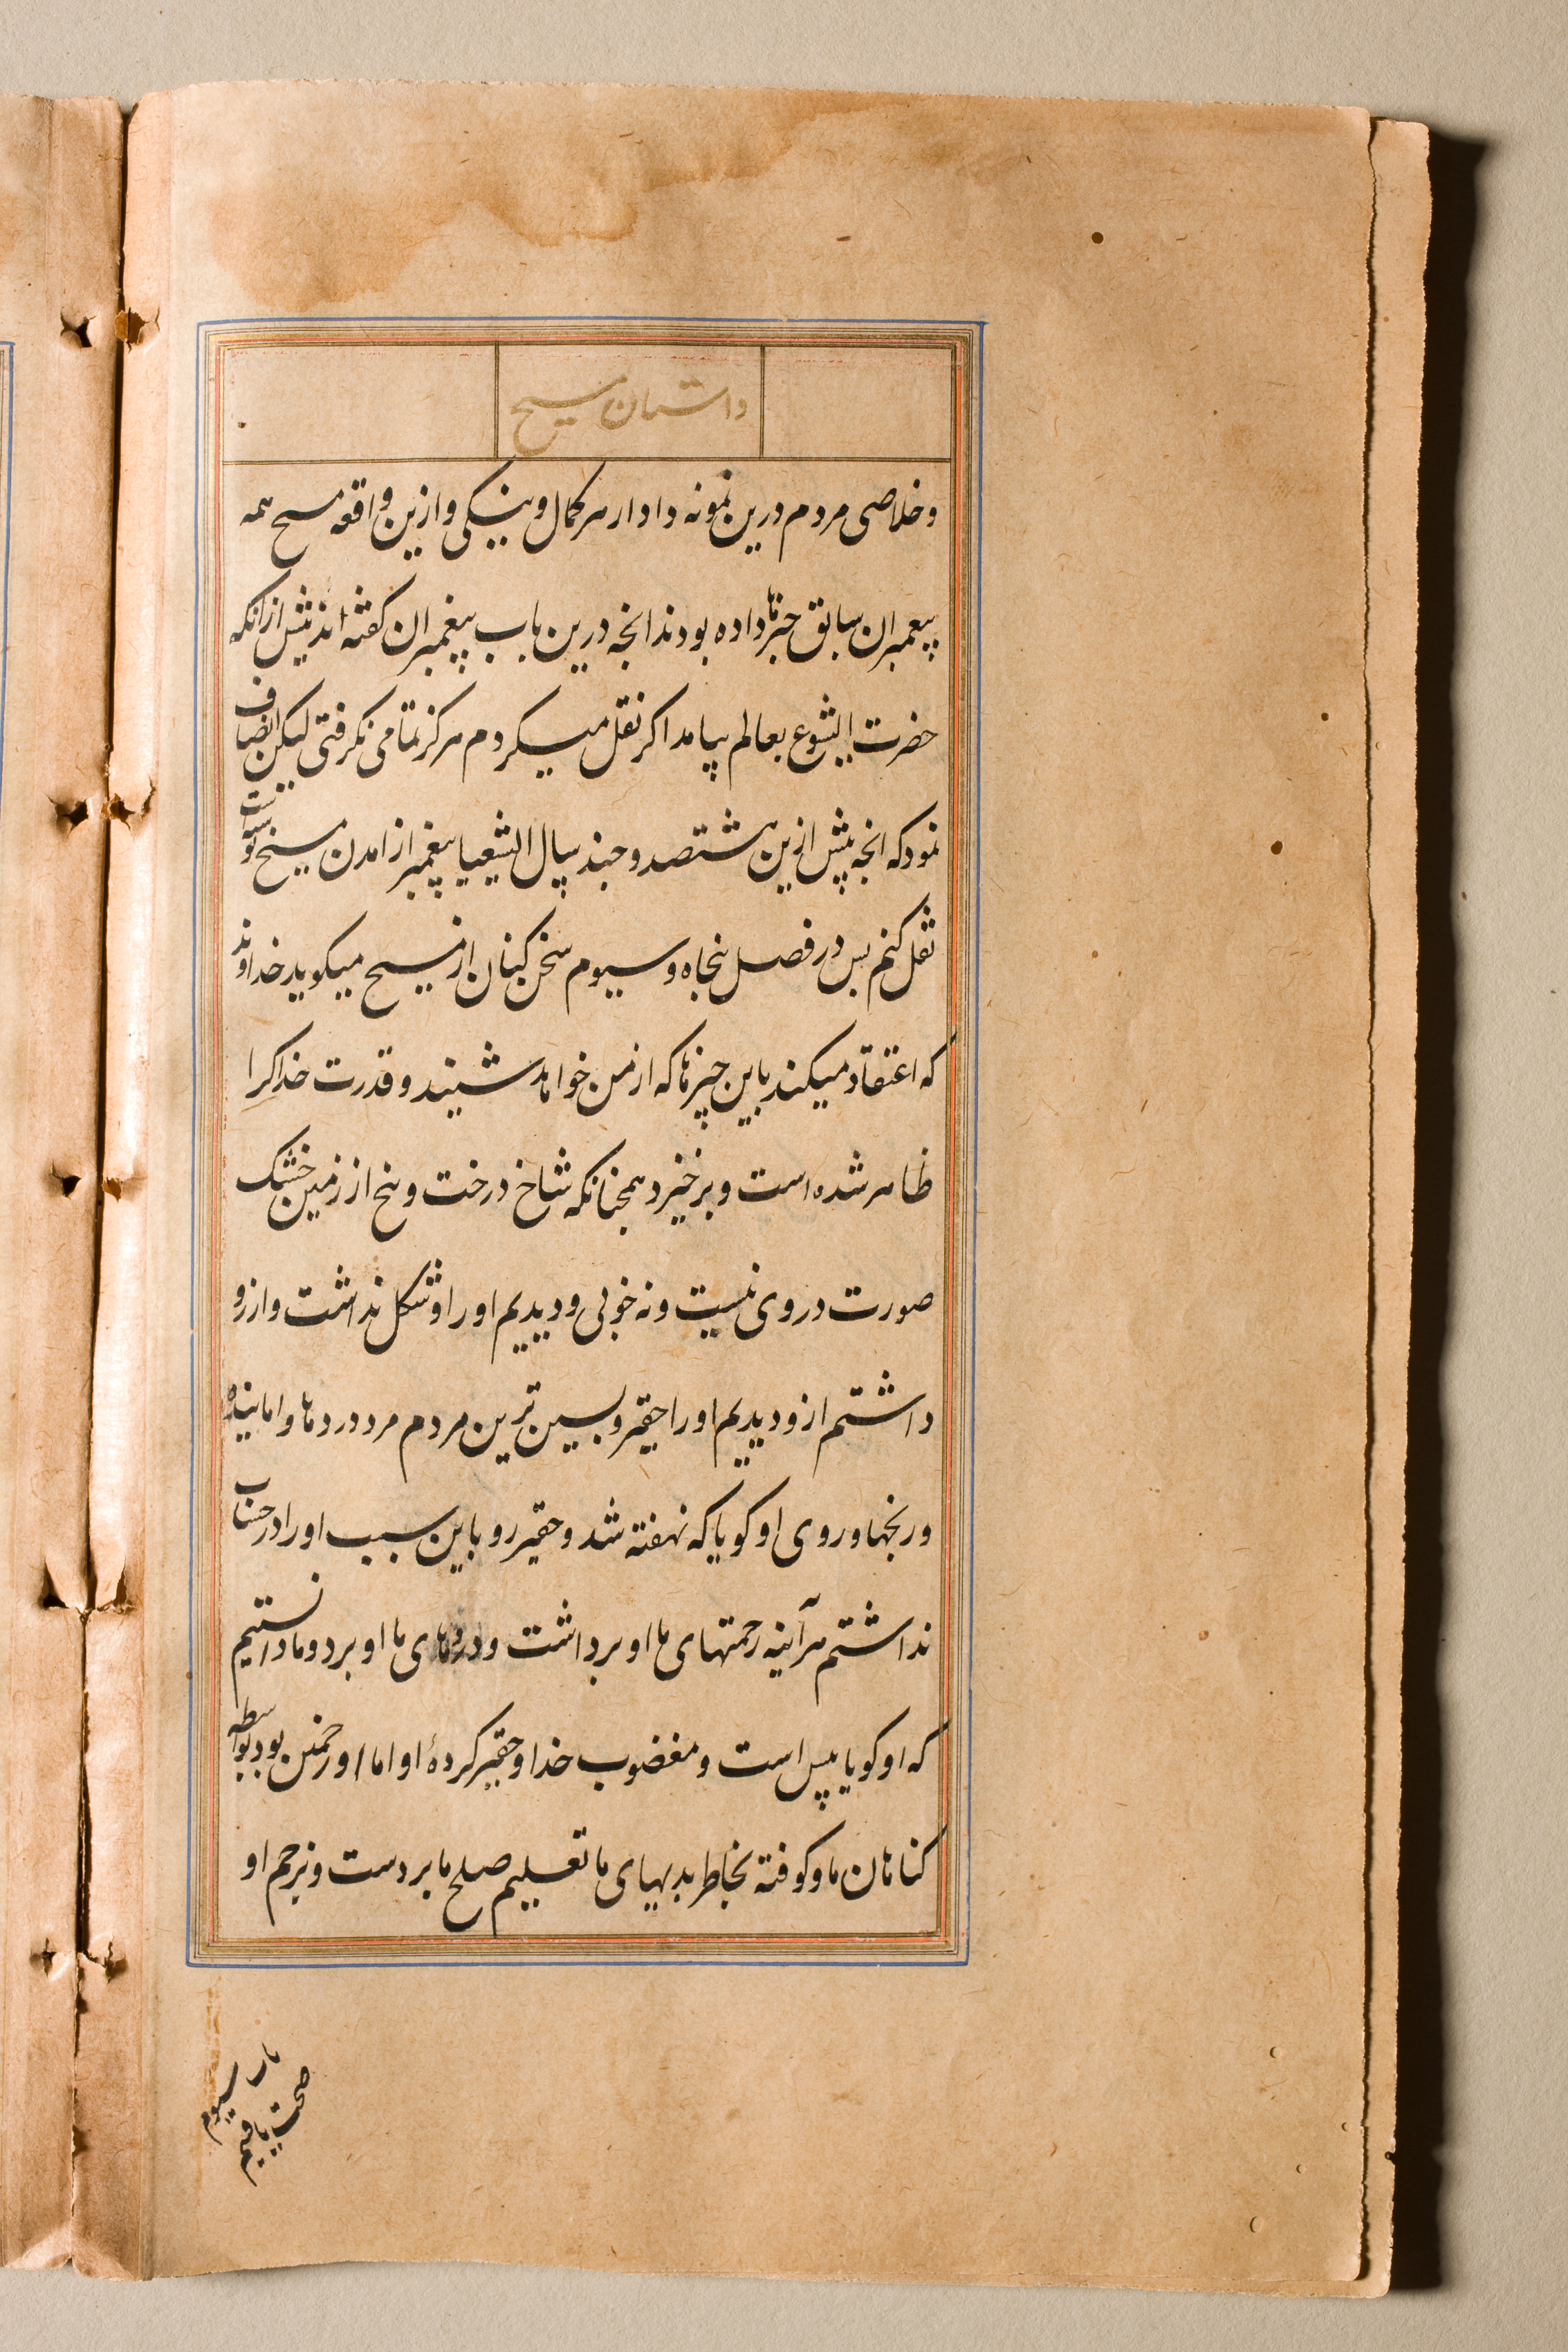 داستان مسیح
و خلاصی مردم درین نمونه داد از سر کمال و نیکی و ازین واقعه مسیح همه
پیغمبران سابق خبرها داده بودند انچه درین باب پیغمبران کفته اند پیش از انکه
حضرت ایشوع بعالم بیامد اکر نقل میکردم هرکز تمامی نکرفتی لیکن انصاف
نمود که انچه پیش ازین هشتصد و چند سال الیشعیا پیغمبر از امدن مسیح نوشته است
نقل کنم پس در فصل پنجاه و سیوم سخن کنان از مسیح میکوید خداوند
که اعتقاد میکند باین چیزها که از من خواهد شنید و قدرت خدا کرا
ظاهر شده است و برخیزد همچنانکه شاخ درخت و بیخ از زمین خشک
صورت در وی نیست و نه خوبی و دیدیم او را و شکل نداشت و ارزو
داشتم ازو دیدیم او را حقیر و پسین ترین مردم مرد دردها و اماینده
و رنجها و روی او کویا که نهفته شد و حقیر رو باین سبب او را در حساب
نداشتم هراینه زحمتهای ما او برداشت و دردهای ما او برد و ما دانستیم
که او کویا پیس است و مغضوب خدا و حقیر کردهٔ او اما او زخمین بود بواسطه
کناهان ما و کوفته بخاطر بدیهای ما تعلیم صلح ما بر دست و بزخم او
باب سیوم
صحت یافتیم